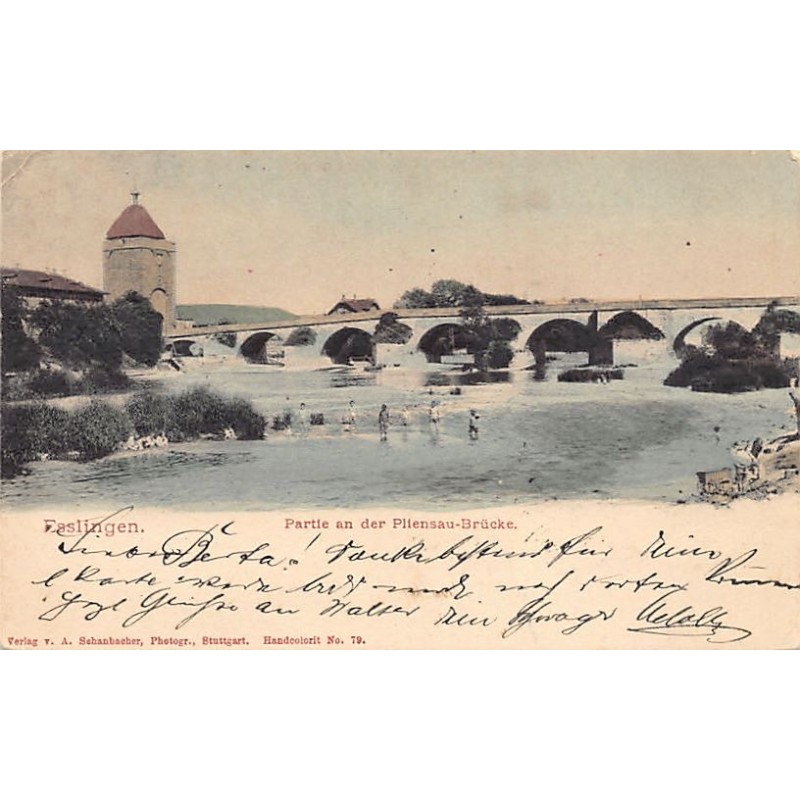 Esslingen.
Partie an der Pliensau-Brücke.
Liebe Berta! Danke bestens für Deine
Karte werde bald mal nach dorten kommen
Hzl Grüsse an Walter Dein Schwager Adolf
Verlag v. A. Schanbacher, Photogr., Stuttgart. Handcolorit No. 79.